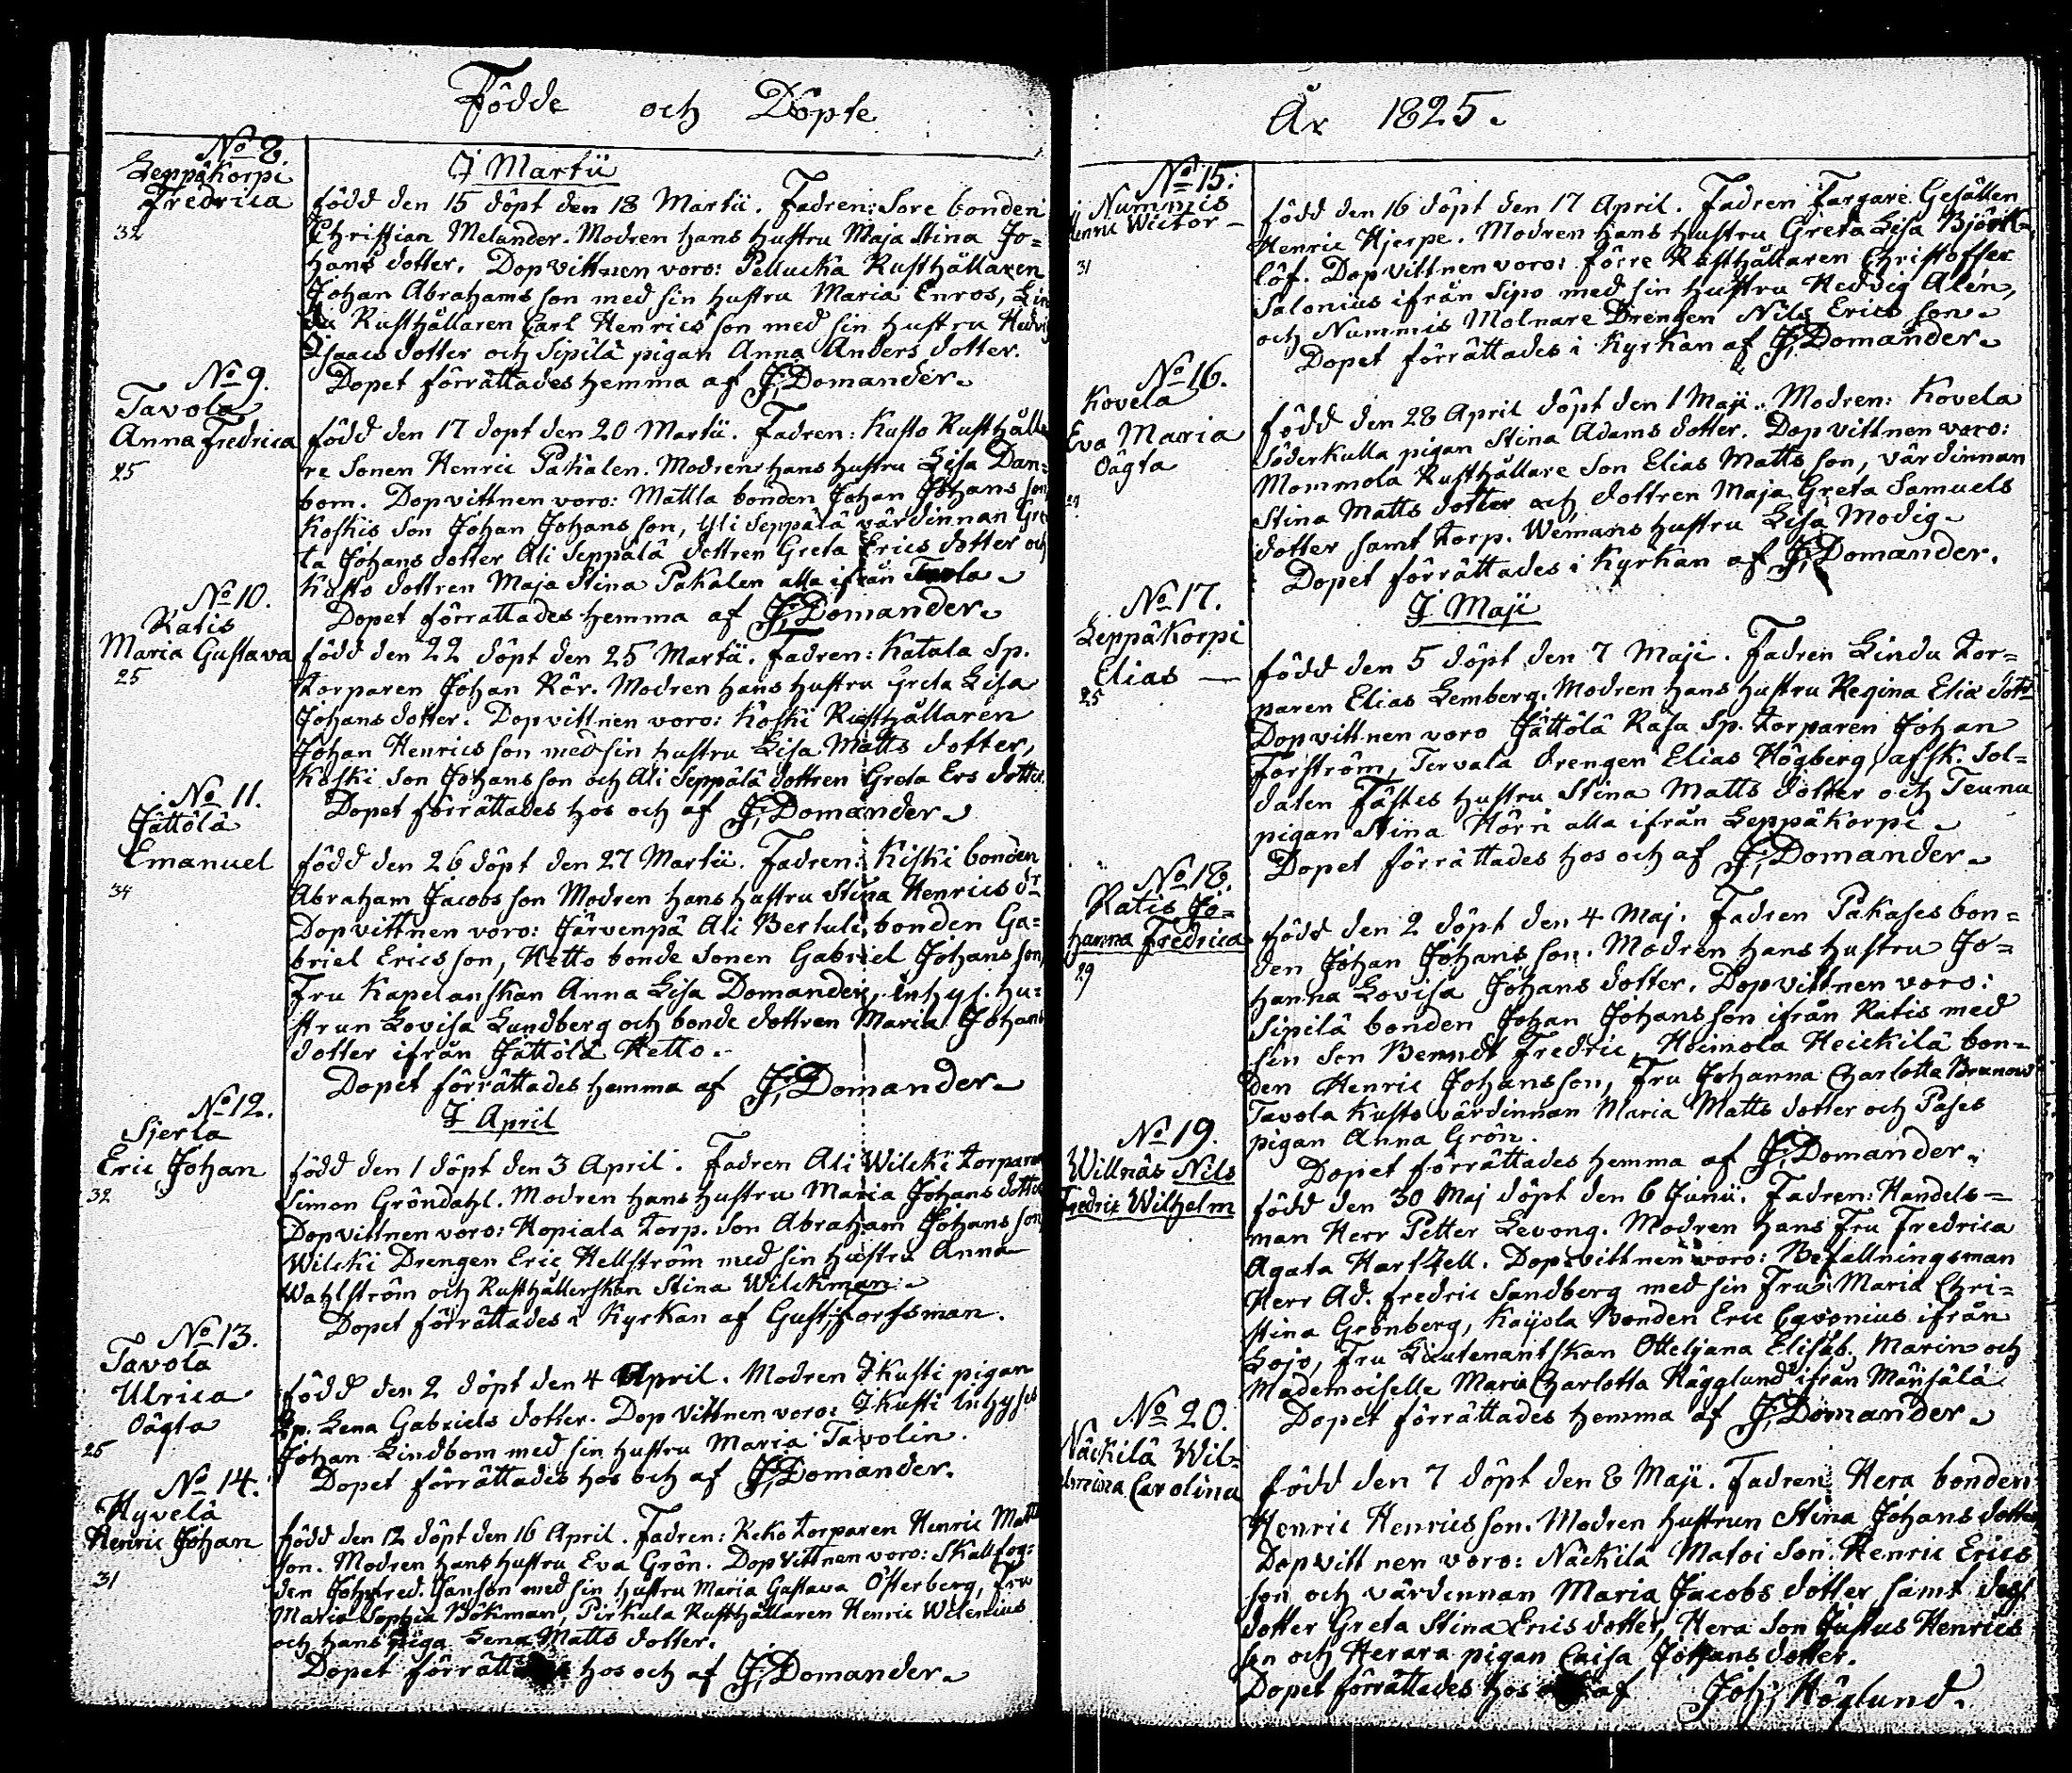 Födde och Döpte
No 8.
Leppäkorpi
Fredrica
32
I Martii
född den 15 döpt den 18 Martii. Fadren: Sore bonden
Christian Melander. Modren hans hustru Maja Stina Jo=
hans dotter. Dopvittnen voro: Pellucka Rusthållaren
Johan Abrahams son med sin hustru Maria Enros, Lin
du Rusthållaren Carl Henrics son med sin hustru Hedvig
Isaacs dotter och Sipilä pigan Anna Anders dotter.
Dopet förrättades hemma af J. Domander.
No 9.
Tavola
Anna Fredrica
25
född den 17 döpt den 20 Martii. Fadren: Kusto Rusthålla
re Sonen Henric Pakalen. Modren hans hustru Lisa Dan=
bom. Dopvittnen voro: Mattla bonden Johan Johans son
Koskis Son Johan Johans son, Yli Seppälä värdinnan Gre
ta Johans dotter Ali Seppälä dottren Greta Erics dotter och
Kusto dottren Maja Stina Pakalen alla ifrån
Dopet förrattades hemma af J. Domander.
No 10.
Ratis
Maria Gustava
25
född den 22 döpt den 25 Martii. Fadren: Katala Sp.
torparen Johan Rör. Modren hans hustru Greta Lisa
Johans dotter. Dopvittnen voro: Koski Rusthållaren
Johan Henrics son med sin hustru Lisa Matts dotter,
Koski Son Johans son och Ali Seppälä dottren Greta Ers dotter.
Dopet förrättades hos och af J. Domander.
No 11.
Jättölä
Emanuel
34
född den 26 döpt den 27 Martii. Fadren: Kiski bonden
Abraham Jacobs son Modren hans hustru Stina Henrics dr
Dopvittnen voro: Järvenpä Ali Bertula bonden Ga=
briel Erics son, Hetto bonde Sonen Gabriel Johans son,
Fru Kapelanskan Anna Lisa Domander, Inhys. hu=
strun Lovisa Lundberg och bonde dottren Maria Johans
dotter ifrån Jättölä Hetto.
Dopet förrättades hemma af J. Domander.
No 12.
Sjerla
Eric Johan
32
I April
född den 1 döpt den 3 April. Fadren Ali Wilcki torparen
Simon Gröndahl. Modren hans hustru Maria Johans dotter
Dopvittnen voro: Hopiala torp. Son Abraham Johans son
Wilcki Drengen Eric Hellström med sin hustru Anna
Wahlström och Rusthållerskan Stina Wilckman.
Dopet förrättades i Kyrkan af Gust. Forfsman.
No 13.
Tavola
Ulrica
Oägta
25
född den 2 döpt den 4 April. Modren Ikusti pigan
Sp. Lena Gabriels dotter. Dopvittnen voro: Ikusti Inhyses
Johan Lindbom med sin hustru Maria Tavolin.
Dopet förrättades hos och af J. Domander.
No 14.
Hyvelä
Henric Johan
31
född den 12 döpt den 16 April. Fadren: Keko torparen Henric Matts
son. Modren hans hustru Eva Grön. Dopvittnen voro: Skallfog=
den Joh. Fred. Janson med sin hustru Maria Gustava Österberg, Fru
Maria Sophia Bökman, Pirkula Rusthållaren Henric Welenius
och hans piga Lena Matts dotter.
Dopet förrättades hos och af J. Domander.
År 1825.
No 15:
Nummis
Henric Wictor
31
född den 16 döpt den 17 April. Fadren Fargare Gesällen
Henric Hjerpe. Modren hans hustru Greta Lisa Björk=
löf. Dopvittnen voro: förre Rusthållaren Christoffer
Salonius ifrån Sipo med sin hustru Hedvig Alen,
och Nummis Molnare Drengen Nils Erics son.
Dopet förrättades i Kyrkan af J. Domander.
No 16.
Kovela
Eva Maria
Oägta
24
född den 28 April döpt den 1 Maji. Modren: Kovela
Söderkulla pigan Stina Adams dotter. Dopvittnen voro:
Mommola Rusthållare Son Elias Matts son, värdinnan
Stina Matts dotter och dottren Maja Greta Samuels
dotter samt torp. Wemans hustru Lisa Modig.
Dopet förrättades i Kyrkan af J. Domander.
No 17.
Leppäkorpi
Elias
25
I Maji
född den 5 döpt den 7 Maji. Fadren Lindu tor=
paren Elias Lemberg. Modren hans hustru Regina Eliæ dotr
Dopvittnen voro Jättölä Rasa Sp. torparen Johan
Forström, Tervala drengen Elias Högberg, afsk. Sol=
daten Fästes hustru Stina Matts dotter och Teunu
pigan Stina Hörn alla ifrån Leppäkorpi.
Dopet förrättades hos och af J. Domander.
No 18.
Ratis Jo=
hanna Fredrica
29
född den 2 döpt den 4 Maj. Fadren Pakases bon=
den Johan Johans son. Modren hans hustru Jo=
hanna Lovisa Johans dotter. Dopvittnen voro:
Sipilä bonden Johan Johans son ifrån Ratis med
sin Son Berndt Fredric, Heimola Heickilä bon=
den Henric Johansson, Fru Johanna Charlotta Brunow
Tavola Kusto värdinnan Maria Matts dotter och Pases
pigan Anna Grön.
Dopet förrättades hemma af J. Domander.
No 19.
Willnäs Nils
Fredric Wilhelm
född den 30 Maj döpt den 6 Junii. Fadren: Handels=
man Herr Petter Levong. Modren hans Fru Fredrica
Agata Hartzell. Dopvittnen voro: Befallningsman
Herr Ad. Fredric Sandberg med sin Fru Maria Chri=
stina Grönberg, Kaijola Bonden Eric Cavonius ifrån
Lojo, Fru Lieutenantskan Otteljana Elisab. Marin och
Mademoiselle Maria Charlotta Hägglund ifrån Mänsälä.
Dopet förrättades hemma af J. Domander.
No 20.
Näckilä Wil=
helmina Carolina
född den 7 döpt den 8 Maji. Fadren Hera bonden
Henric Henrics son. Modren hustrun Stina Johans dotter
Dopvittnen voro: Näckilä Matoi Son Henric Erics
son och värdinnan Maria Jacobs dotter samt
dotter Greta Stina Erics dotter, Hera Son Justus Henrics
son och Herara pigan Caisa Johans dotter.
Dopet förrättades hos och af Joh. Höglund.